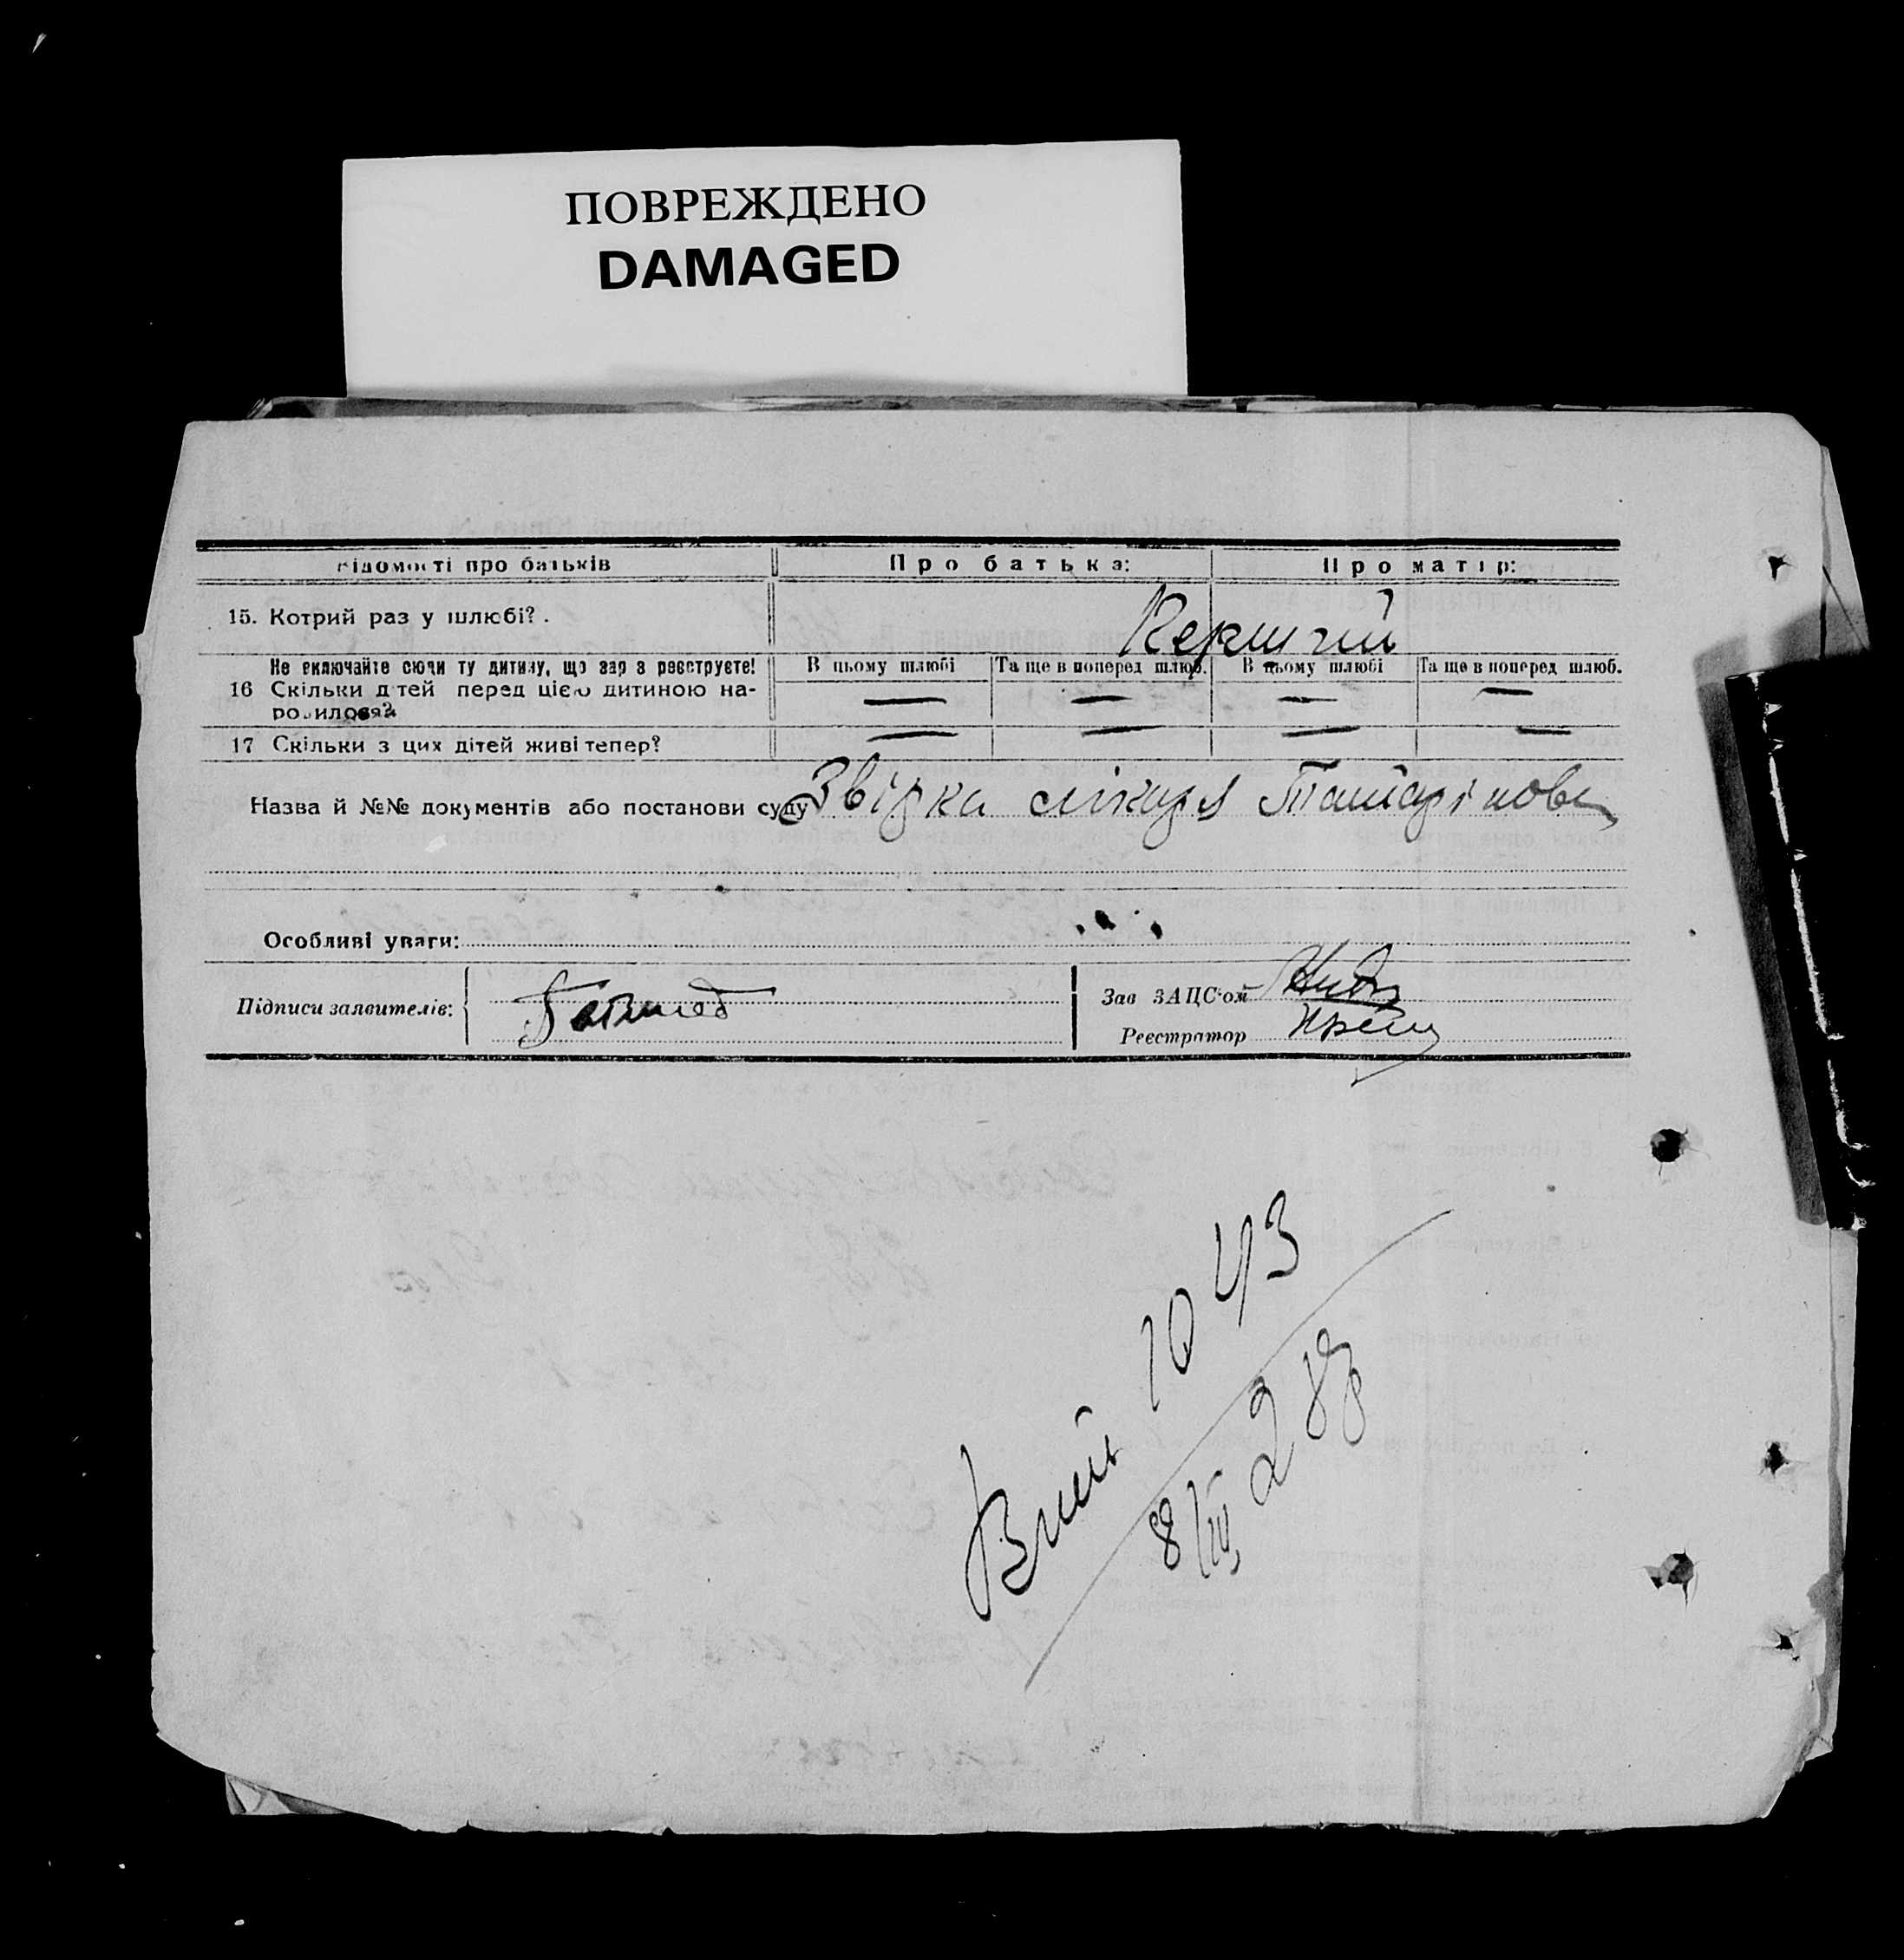 ПОВРЕЖДЕНО
DAMAGED
відомості про батьків Про батька: Про матір:
15. Котрий раз у шлюбі? . Перший
Не включайте сюди ту дитину, що зар з реєструєте! В цьому шлюбі Та ще в поперед шлюб. В цьому шлюбі Та ще в поперед шлюб.
16 Скільки дітей перед цією дитиною на- — — — —
родилося?
17 Скільки з цих дітей живі тепер? — — — —
Назва й №№ документів або постанови суду Звірка лікаря
Особливі уваги:
Підписи заявителів:
Зав ЗАЦС'ом
Реєстратор
1043
8/III 288